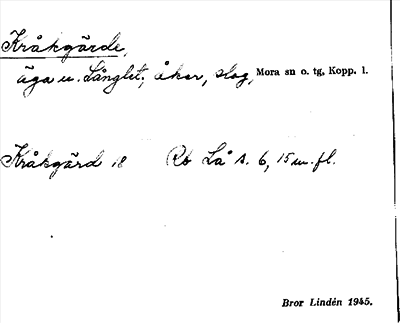 Kråkgärde,
äga u. Långlet; åker, slog, Mora sn o. tg, Kopp. l.
Kråkgärd 18 Rö Lå s. 6, 15 m. fl.
Bror Lindén 1945.